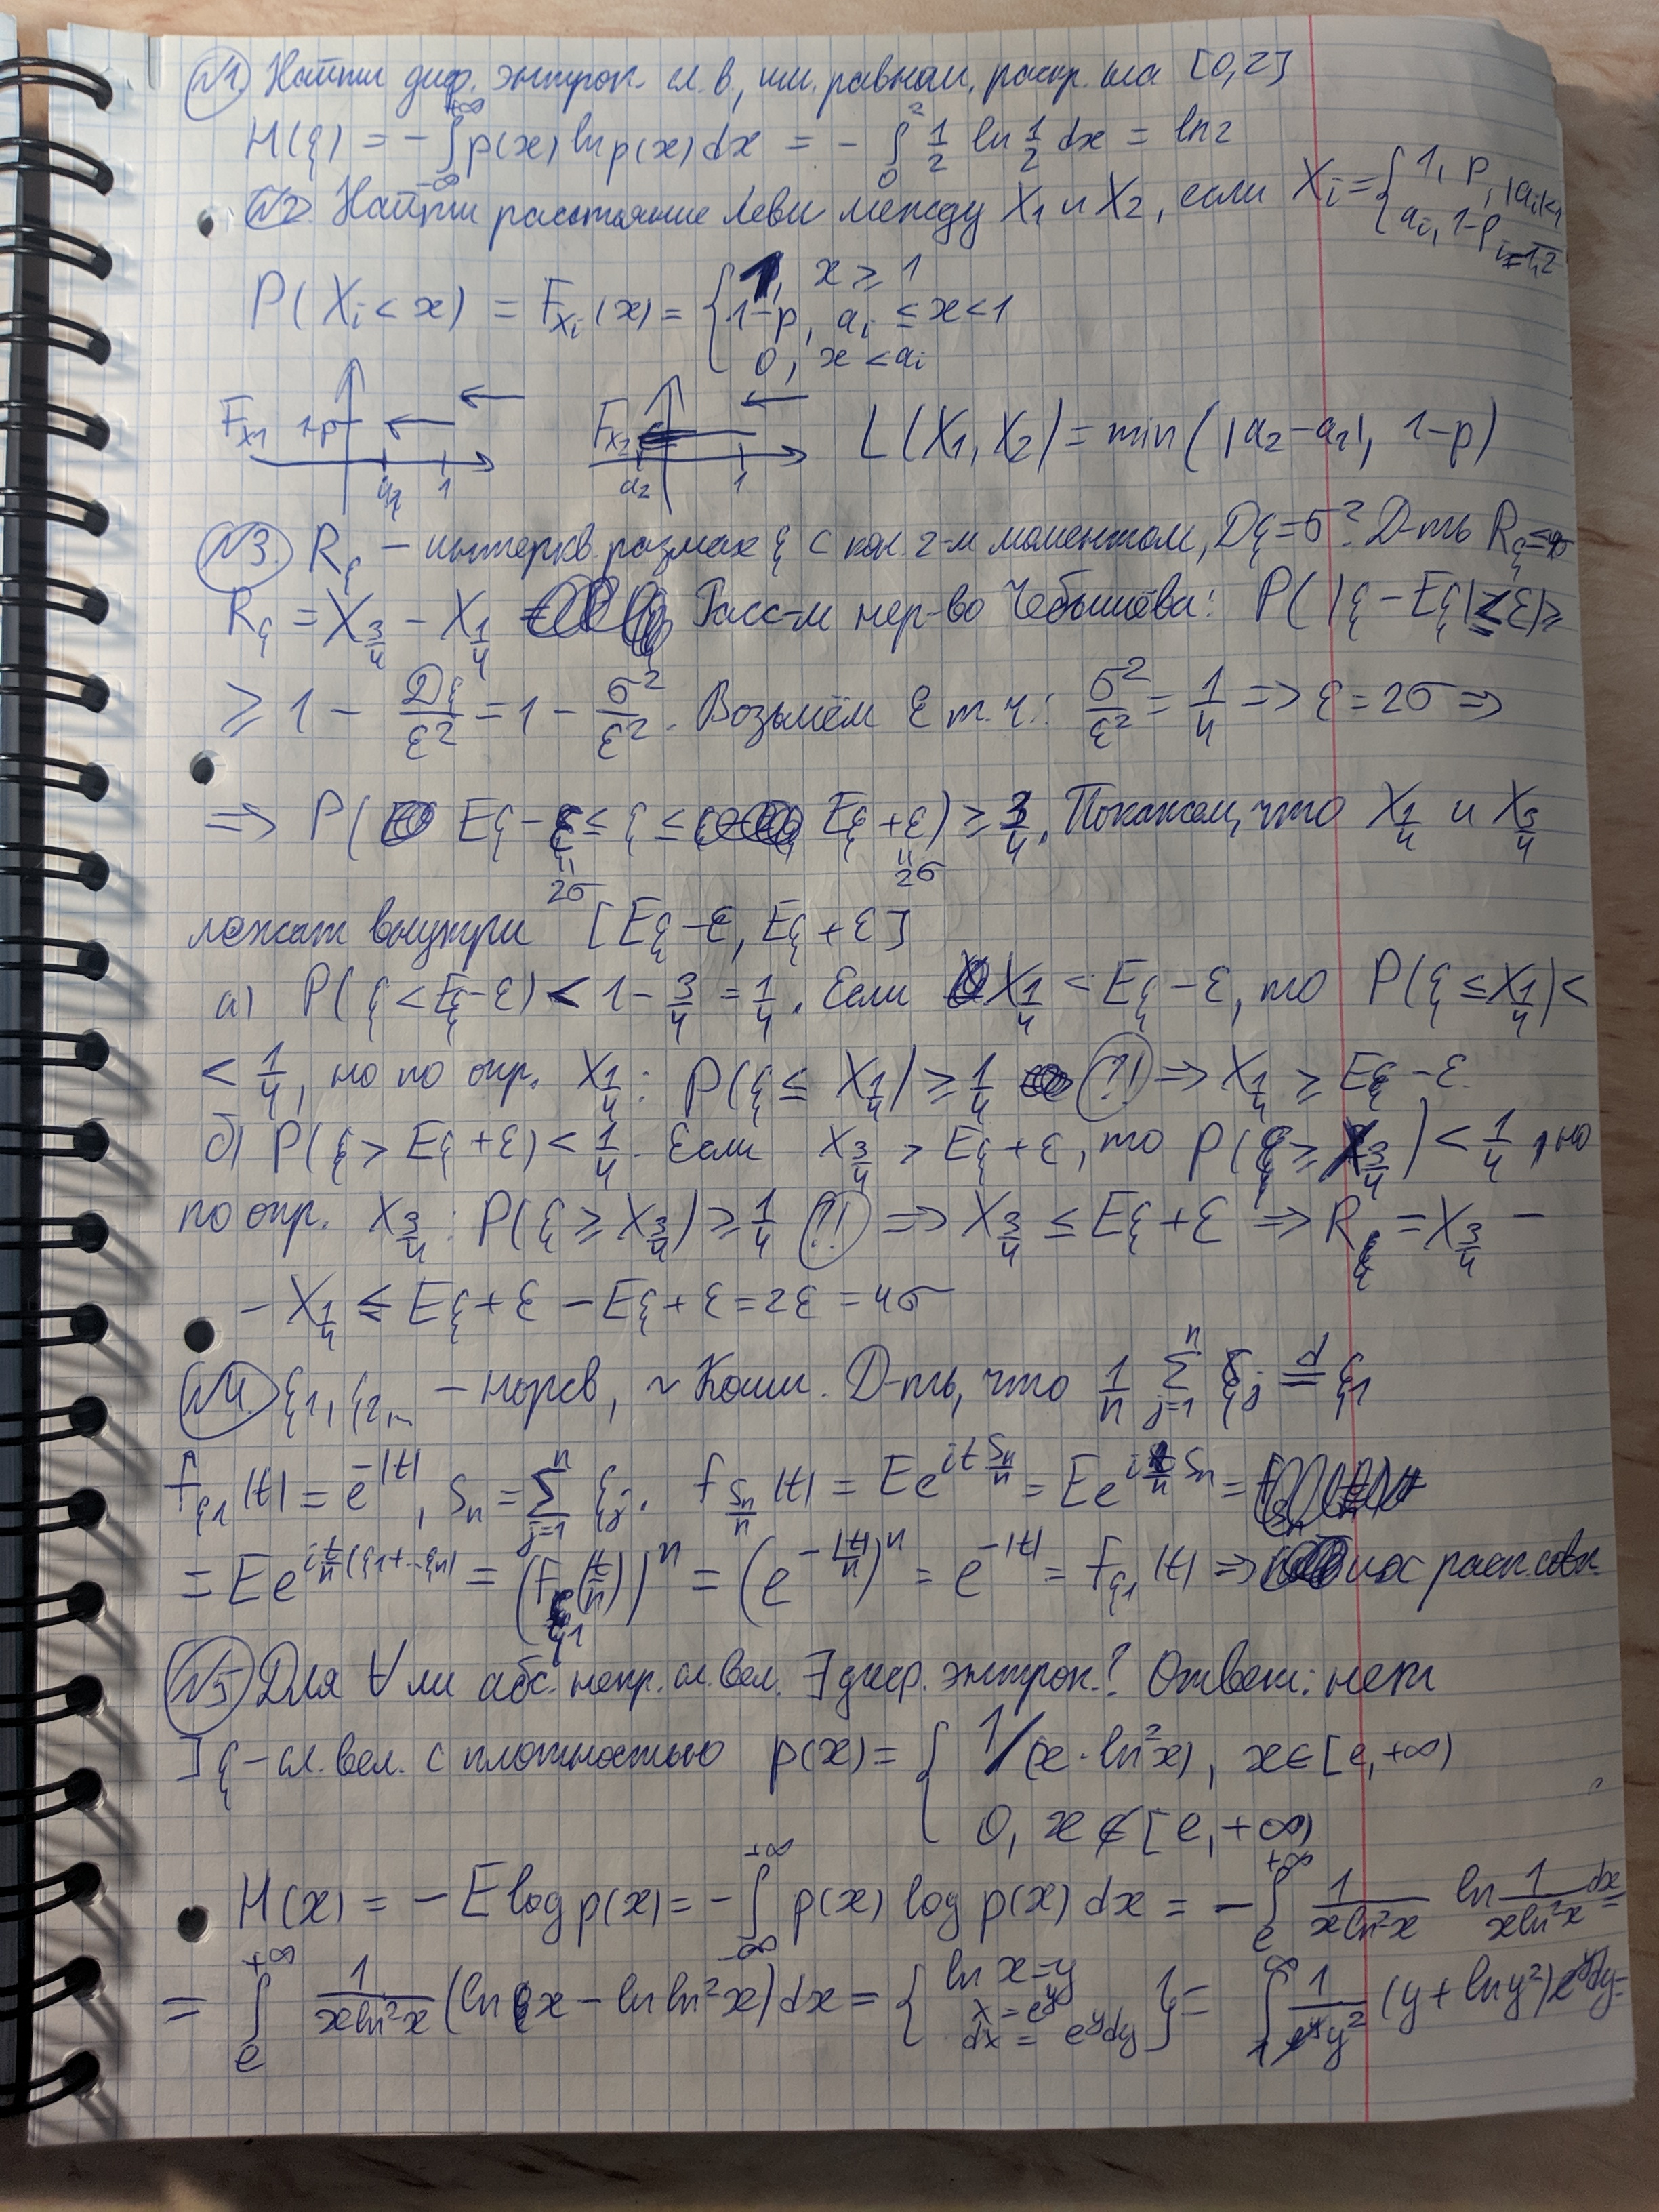 №1. Найти диф. энтроп. сл. в., им. равном. распр. на [0,2]
H(ξ) = -∫_{-∞}^{+∞} p(x) ln p(x) dx = -∫_0^2 1/2 ln 1/2 dx = ln2
№2. Найти расстояние Леви между X₁ и X₂, если X_i = { 1, p ; a_i, 1-p , |a_i|<1, i=1,2
P(X_i < x) = F_{X_i}(x) = { 1, x ≥ 1
1-p, a_i ≤ x < 1
0, x < a_i
F_{X₁} 1-p a₁ 1 F_{X₂} a₂ 1 L(X₁, X₂) = min(|a₂-a₁|, 1-p)
№3. R_ξ – интеркв. размах ξ с кон. 2-м моментом, Dξ = σ². Д-ть R_ξ ≤ 4σ
R_ξ = X_{3/4} - X_{1/4} Расс-м нер-во Чебышёва: P(|ξ - Eξ| ≤ ε) ≥
≥ 1 - Dξ/ε² = 1 - σ²/ε². Возьмём ε т.ч.: σ²/ε² = 1/4 => ε = 2σ =>
=> P( Eξ - ε ≤ ξ ≤ Eξ + ε) ≥ 3/4. Покажем, что X_{1/4} и X_{3/4}
2σ 2σ
лежат внутри [Eξ - ε, Eξ + ε]
а) P(ξ < Eξ - ε) < 1 - 3/4 = 1/4. Если X_{1/4} < Eξ - ε, то P(ξ ≤ X_{1/4}) <
< 1/4, но по опр. X_{1/4}: P(ξ ≤ X_{1/4}) ≥ 1/4 (?!) => X_{1/4} ≥ Eξ - ε.
б) P(ξ > Eξ + ε) < 1/4. Если X_{3/4} > Eξ + ε, то P(ξ ≥ X_{3/4}) < 1/4, но
по опр. X_{3/4}: P(ξ ≥ X_{3/4}) ≥ 1/4 (?!) => X_{3/4} ≤ Eξ + ε => R_ξ = X_{3/4} -
- X_{1/4} ≤ Eξ + ε - Eξ + ε = 2ε = 4σ
№4. ξ₁, ξ₂, ... – норсв, ~ Коши. Д-ть, что 1/n ∑_{j=1}^n ξ_j =^d ξ₁
f_{ξ₁}(t) = e^{-|t|}, S_n = ∑_{j=1}^n ξ_j. f_{S_n/n}(t) = E e^{it S_n/n} = E e^{i t/n S_n} =
= E e^{i t/n (ξ₁+...ξ_n)} = (f_{ξ₁}(t/n))^n = (e^{-|t|/n})^n = e^{-|t|} = f_{ξ₁}(t) => расп. совп.
№5 Для ∀ ли абс. непр. сл. вел. ∃ диф. энтроп.? Ответ: нет
] ξ – сл. вел. с плотностью p(x) = { 1/(x·ln²x), x ∈ [e, +∞)
0, x ∉ [e, +∞)
H(x) = -E log p(x) = -∫_{-∞}^{+∞} p(x) log p(x) dx = -∫_e^{+∞} 1/(x ln²x) ln 1/(x ln²x) dx =
= ∫_e^{+∞} 1/(x ln²x) (ln x - ln ln²x) dx = { ln x = y
x = e^y
dx = e^y dy } = ∫_1^∞ 1/(e^y y²) (y + ln y²) e^y dy =